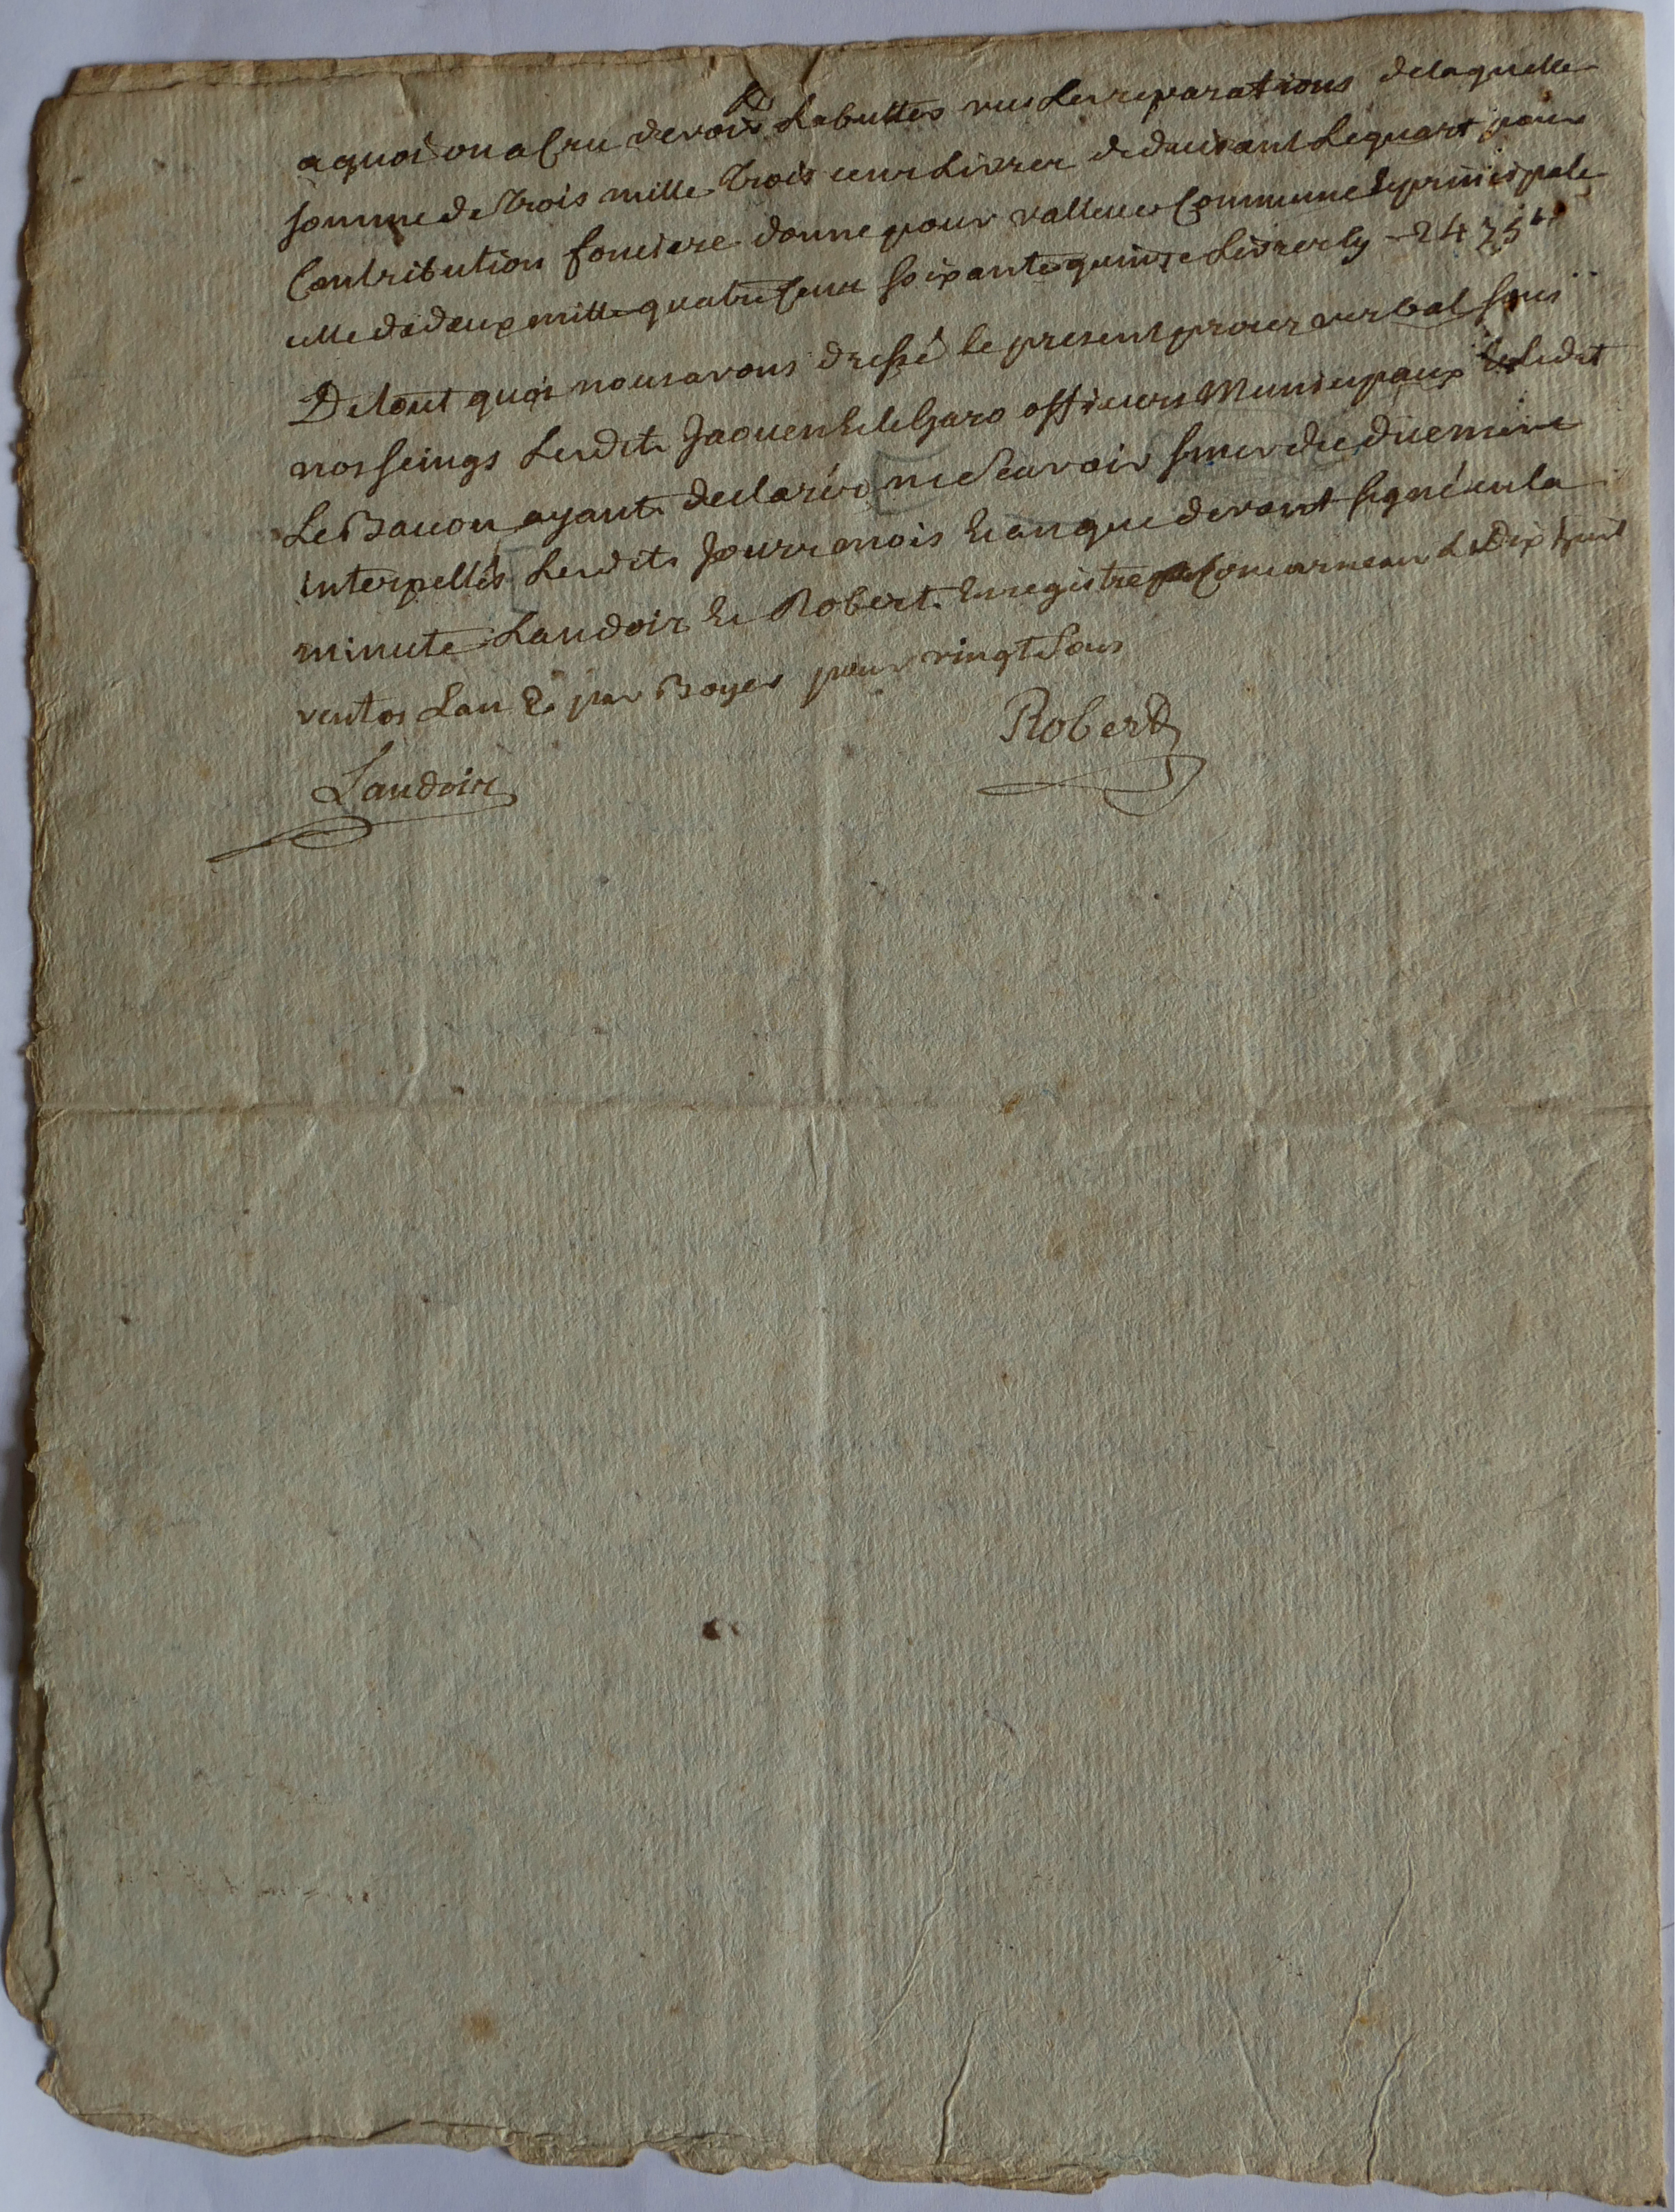 a quoi on a Cru devoir Rabuttes vus Les reparations de laquelle
somme de Trois mille Trois cens Livres deduisant Le quart pour
Contribution fonciere donne pour valleur Commune & principale
celle de deux mille quatre Cens soixante quinze Livres Cy - 2475ᴸᵗ
De tout quoi nous avons dressé le present procès verbal sous
nos seings Lesdits Jaouen & officiers Municipaux & Ledit
Le Bacon ayant declarés ne Scavoir signer de ce duement
interpellés Lesdits Jour mois & an que devant signé en la
minute Landoir & Robert. Enregistré a Concarneau Le Dix huit
ventos Lan 2e par Boyer pour vingt Sous
Robert
Landoir